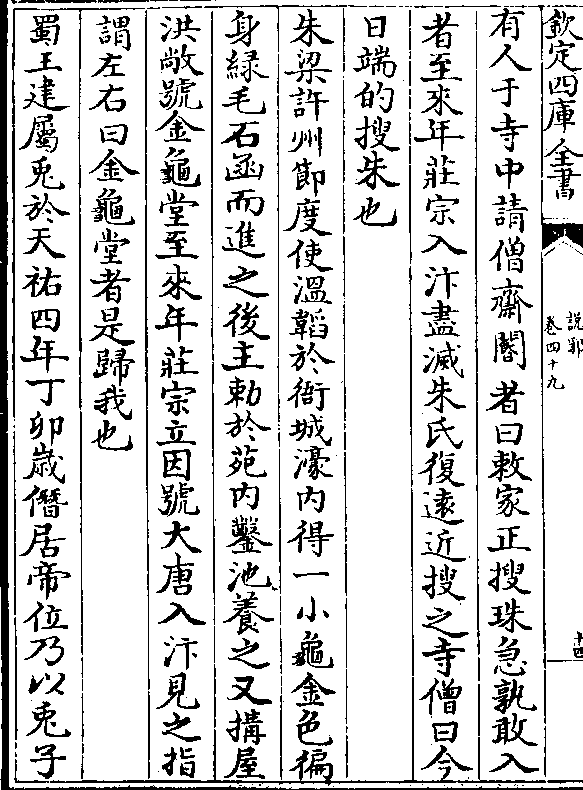 欽定四庫全書
說郛
卷四十九
十四
有人于寺中請僧齋閽者曰敕家正搜珠急孰敢入
者至來年莊宗入汴盡滅朱氏復遠近搜之寺僧曰今
日端的搜朱也
朱梁許州節度使溫韜於衙城濠内得一小龜金色徧
身緑毛石函而進之後主勅於苑内鑿池養之又搆屋
洪敞號金龜堂至來年莊宗立因號大唐入汴見之指
謂左右曰金龜堂者是歸我也
蜀王建屬兎於天祐四年丁卯歲僭居帝位乃以兎子